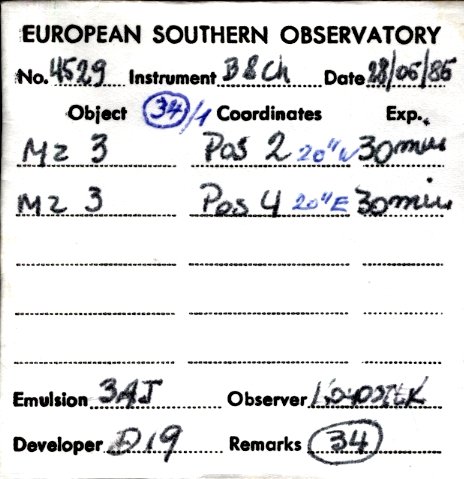 EUROPEAN SOUTHERN OBSERVATORY
No. 4529 Instrument B&Ch Date 28/05/86
Object 34/1 Coordinates Exp.
Mz 3 Pos 2 20"W 30min
Mz 3 Pos 4 20"E 30min
Emulsion 3AJ Observer
Developer D19 Remarks 34